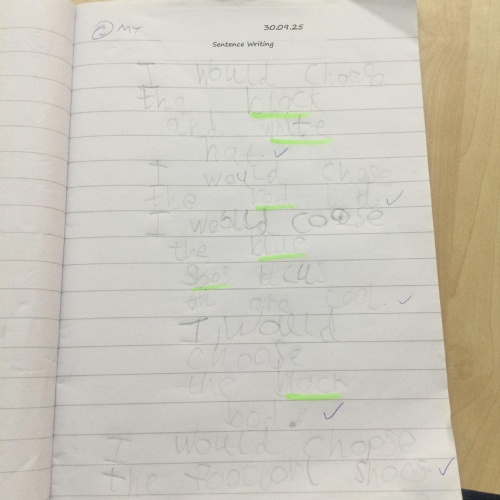 MT
30.09.25
Sentence Writing
I would choose
the black
and wite
hat.
I would chose
the red
I would coose
the blue
shos bicus
are cool.
I would
choose
the black
I would choose
the shoos